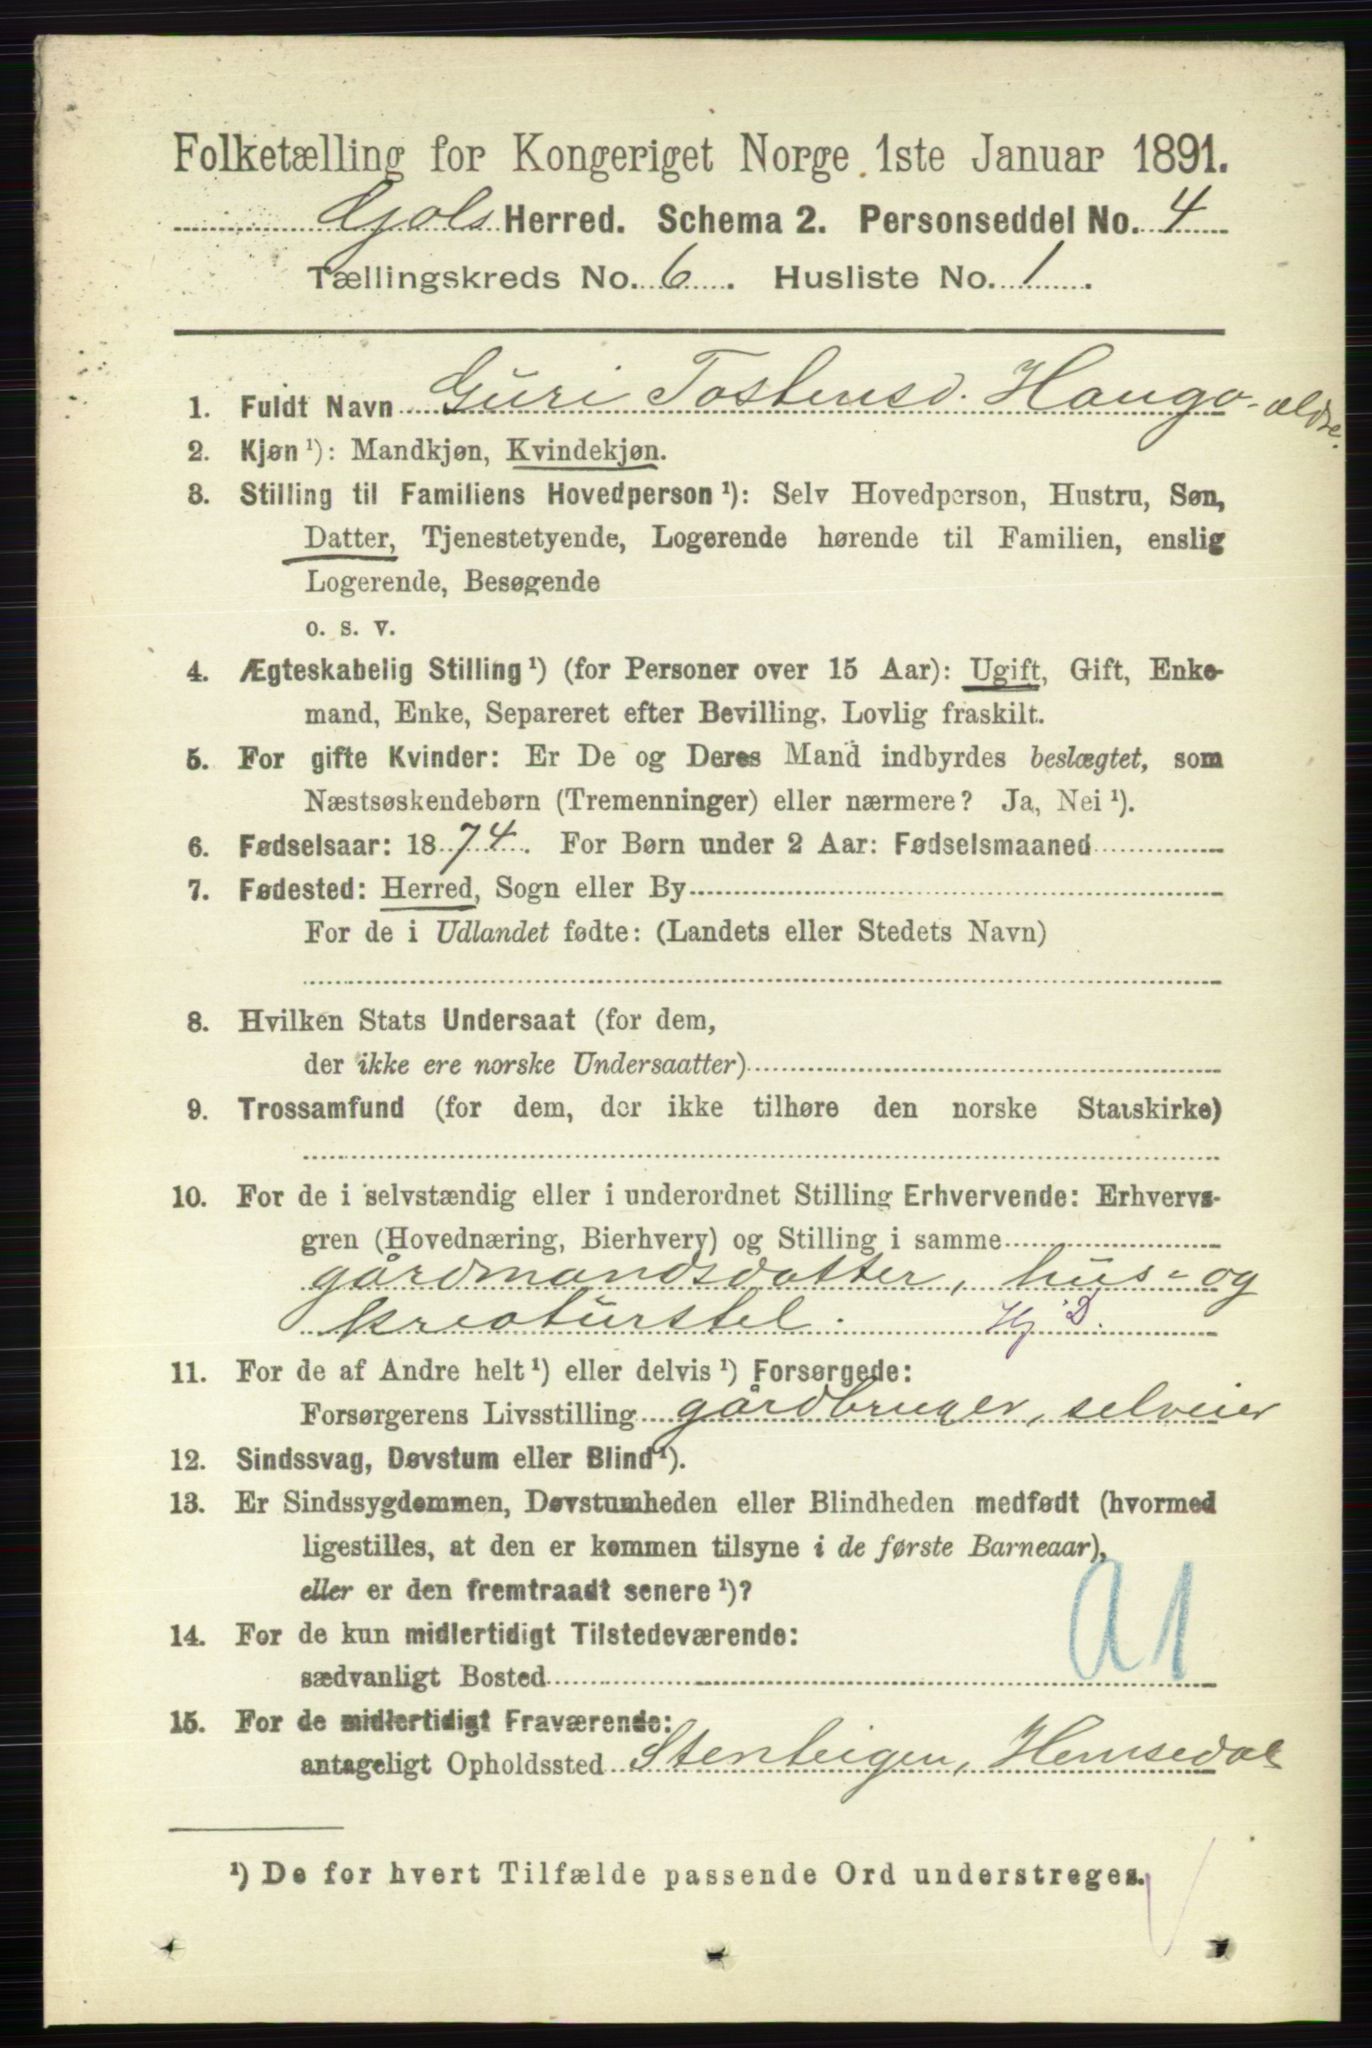 Folketælling for Kongeriget Norge 1ste Januar 1891.
Gols Herred. Schema 2. Personseddel No. 4
Tællingskreds No. 6. Husliste No. 1.
1. Fuldt Navn Guri Tostensd. Haugo - aldre.
2. Kjøn ¹): Mandkjøn, Kvindekjøn.
3. Stilling til Familiens Hovedperson ¹): Selv Hovedperson, Hustru, Søn,
Datter, Tjenestetyende, Logerende hørende til Familien, enslig
Logerende, Besøgende
o. s. v.
4. Ægteskabelig Stilling ¹) (for Personer over 15 Aar): Ugift, Gift, Enke-
mand, Enke, Separeret efter Bevilling. Lovlig fraskilt.
5. For gifte Kvinder: Er De og Deres Mand indbyrdes beslægtet, som
Næstsøskendebørn (Tremenninger) eller nærmere? Ja, Nei ¹).
6. Fødselsaar: 1874. For Børn under 2 Aar: Fødselsmaaned
7. Fødested: Herred, Sogn eller By
For de i Udlandet fødte: (Landets eller Stedets Navn)
8. Hvilken Stats Undersaat (for dem,
der ikke ere norske Undersaatter)
9. Trossamfund (for dem, der ikke tilhøre den norske Statskirke)
10. For de i selvstændig eller i underordnet Stilling Erhvervende: Erhvervs-
gren (Hovednæring, Bierhverv) og Stilling i samme
gårdmandsdatter, hus- og
kreaturstel. Hj D.
11. For de af Andre helt ¹) eller delvis ¹) Forsørgede:
Forsørgerens Livsstilling gårdbruger, selveier
12. Sindssvag, Døvstum eller Blind ¹).
13. Er Sindssygdommen, Døvstumheden eller Blindheden medfødt (hvormed
ligestilles, at den er kommen tilsyne i de første Barneaar),
eller er den fremtraadt senere ¹)?
14. For de kun midlertidigt Tilstedeværende:
sædvanligt Bosted
a1
15. For de midlertidigt Fraværende:
antageligt Opholdssted Stenleigen, Hemsedal
¹) De for hvert Tilfælde passende Ord understreges.